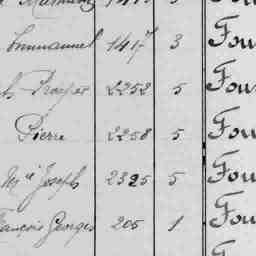 Emmanuel 1417 3 Fou
Prosper 2252 5 Fou
Pierre 2258 5 Fou
Mie Joseph 2325 5 Fou
François Georges 205 1 Fou